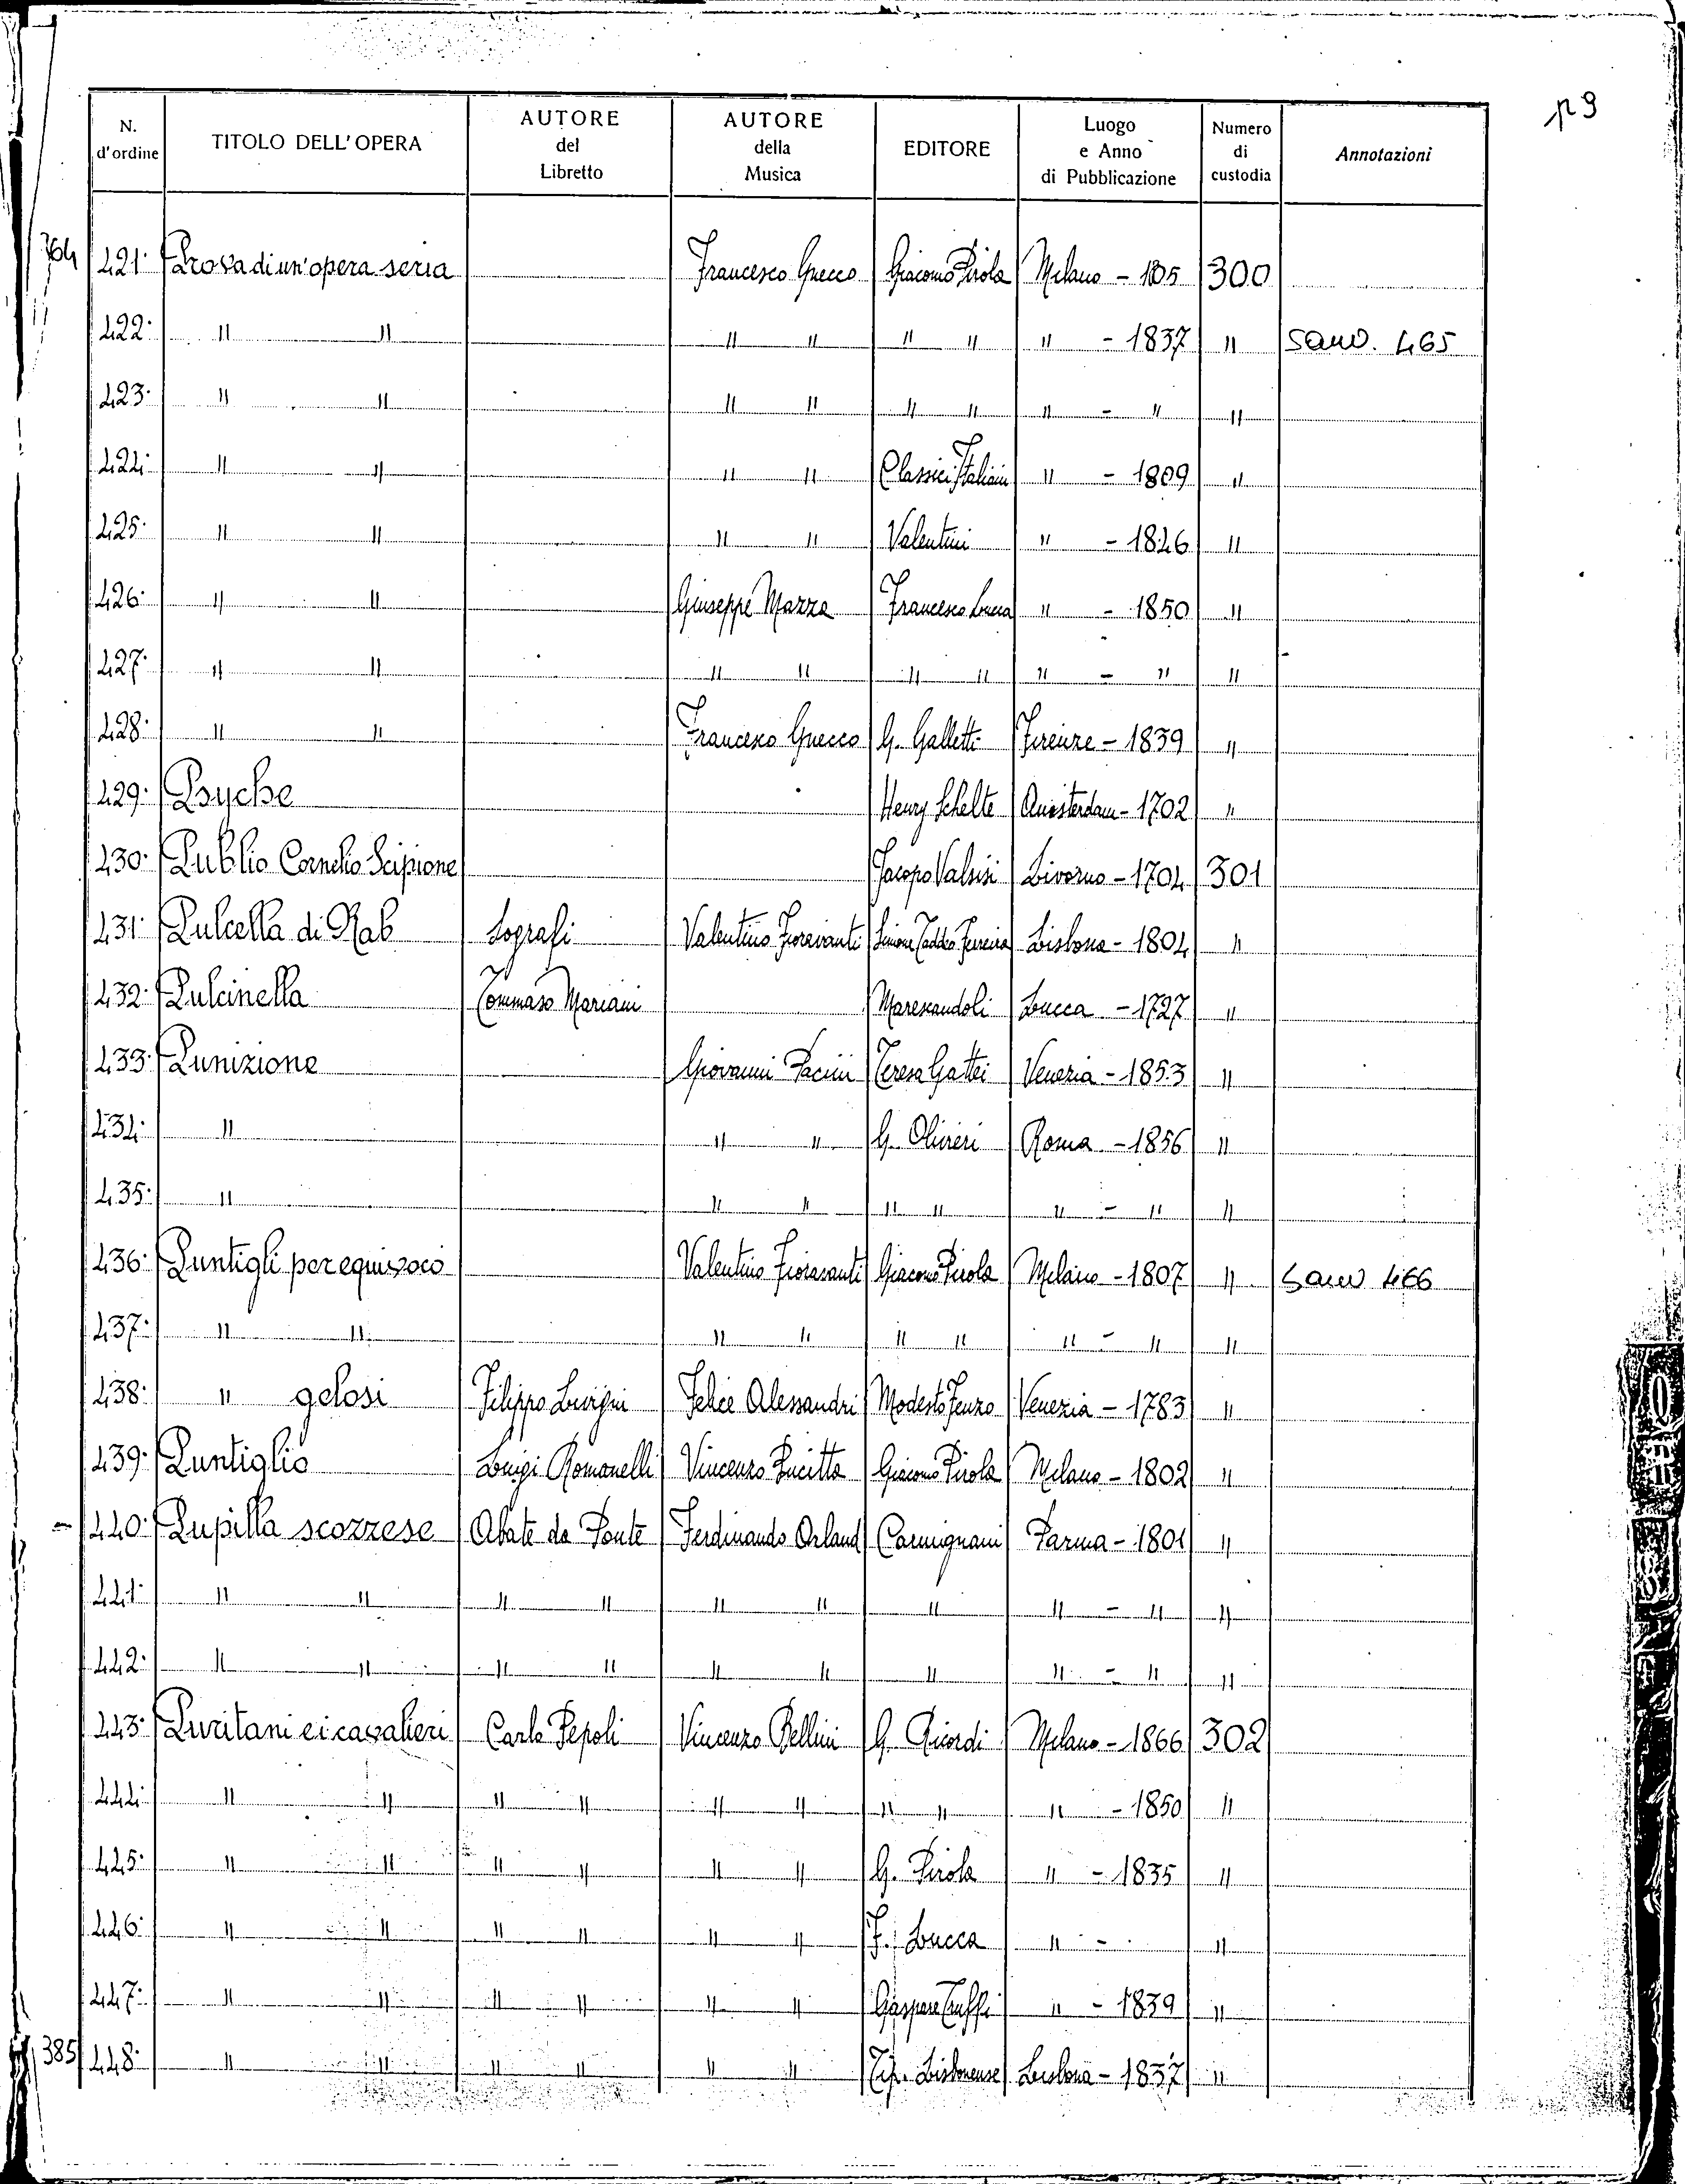 p 9
N. d'ordine | TITOLO DELL'OPERA | AUTORE del Libretto | AUTORE della Musica | EDITORE | Luogo e Anno di Pubblicazione | Numero di custodia | Annotazioni
421. Prova di un'opera seria | | Francesco Gnecco | Giacomo Pirola | Milano - | 300
422. " " | | " " | " " | " - 1837 | " | Sanv. 465
423. " " | | " " | " " | " - " | "
424. " " | | " " | Classici Italiani | " - 1809 | "
425. " " | | " " | Valentini | " - 1826 | "
426. " " | | Giuseppe Mazza | Francesco Lucca | " - 1850 | "
427. " " | | " " | " " | " - " | "
428. " " | | Francesco Gnecco | G. Galletti | Firenze - 1839 | "
429. Psyche | | | Henry Schelte | Amsterdam - 1702 | "
430. Publio Cornelio Scipione | | | Jacopo Valsisi | Livorno - 1704 | 301
431. Pulcella di Rab | Sografi | Valentino Fioravanti | Simone Taddeo Ferreira | Lisbona - 1804 | "
432. Pulcinella | Tommaso Mariani | | Marescandoli | Lucca - 1727 | "
433. Punizione | | Giovanni Pacini | Teresa Gattei | Venezia - 1853 | "
434. " | | " " | G. Olivieri | Roma - 1856 | "
435. " | | " " | " " | " - " | "
436. Puntigli per equivoco | | Valentino Fioravanti | Giacomo Pirola | Milano - 1807 | " | Sanv 466
437. " " | | " " | " " | " - " | "
438. " gelosi | Filippo Livigni | Felice Alessandri | Modesto Fenzo | Venezia - 1783 | "
439. Puntiglio | Luigi Romanelli | Vincenzo Pucitta | Giacomo Pirola | Milano - 1802 | "
- 440. Pupilla scozzese | Abate da Ponte | Ferdinando Orland | Carmignani | Parma - 1801 | "
441. " " | " " | " " | " | " - " | "
442. " " | " " | " " | " | " - " | "
443. Puritani e i cavalieri | Carlo Pepoli | Vincenzo Bellini | G. Ricordi | Milano - 1866 | 302
444. " " | " " | " " | " " | " - 1850 | "
445. " " | " " | " " | G. Pirola | " - 1835 | "
446. " " | " " | " " | F. Lucca | " - | "
447. " " | " " | " " | Gaspare Truffi | " - 1839 | "
385 448. " " | " " | " " | Tip. Lisbonense | Lisbona - 1837 | "